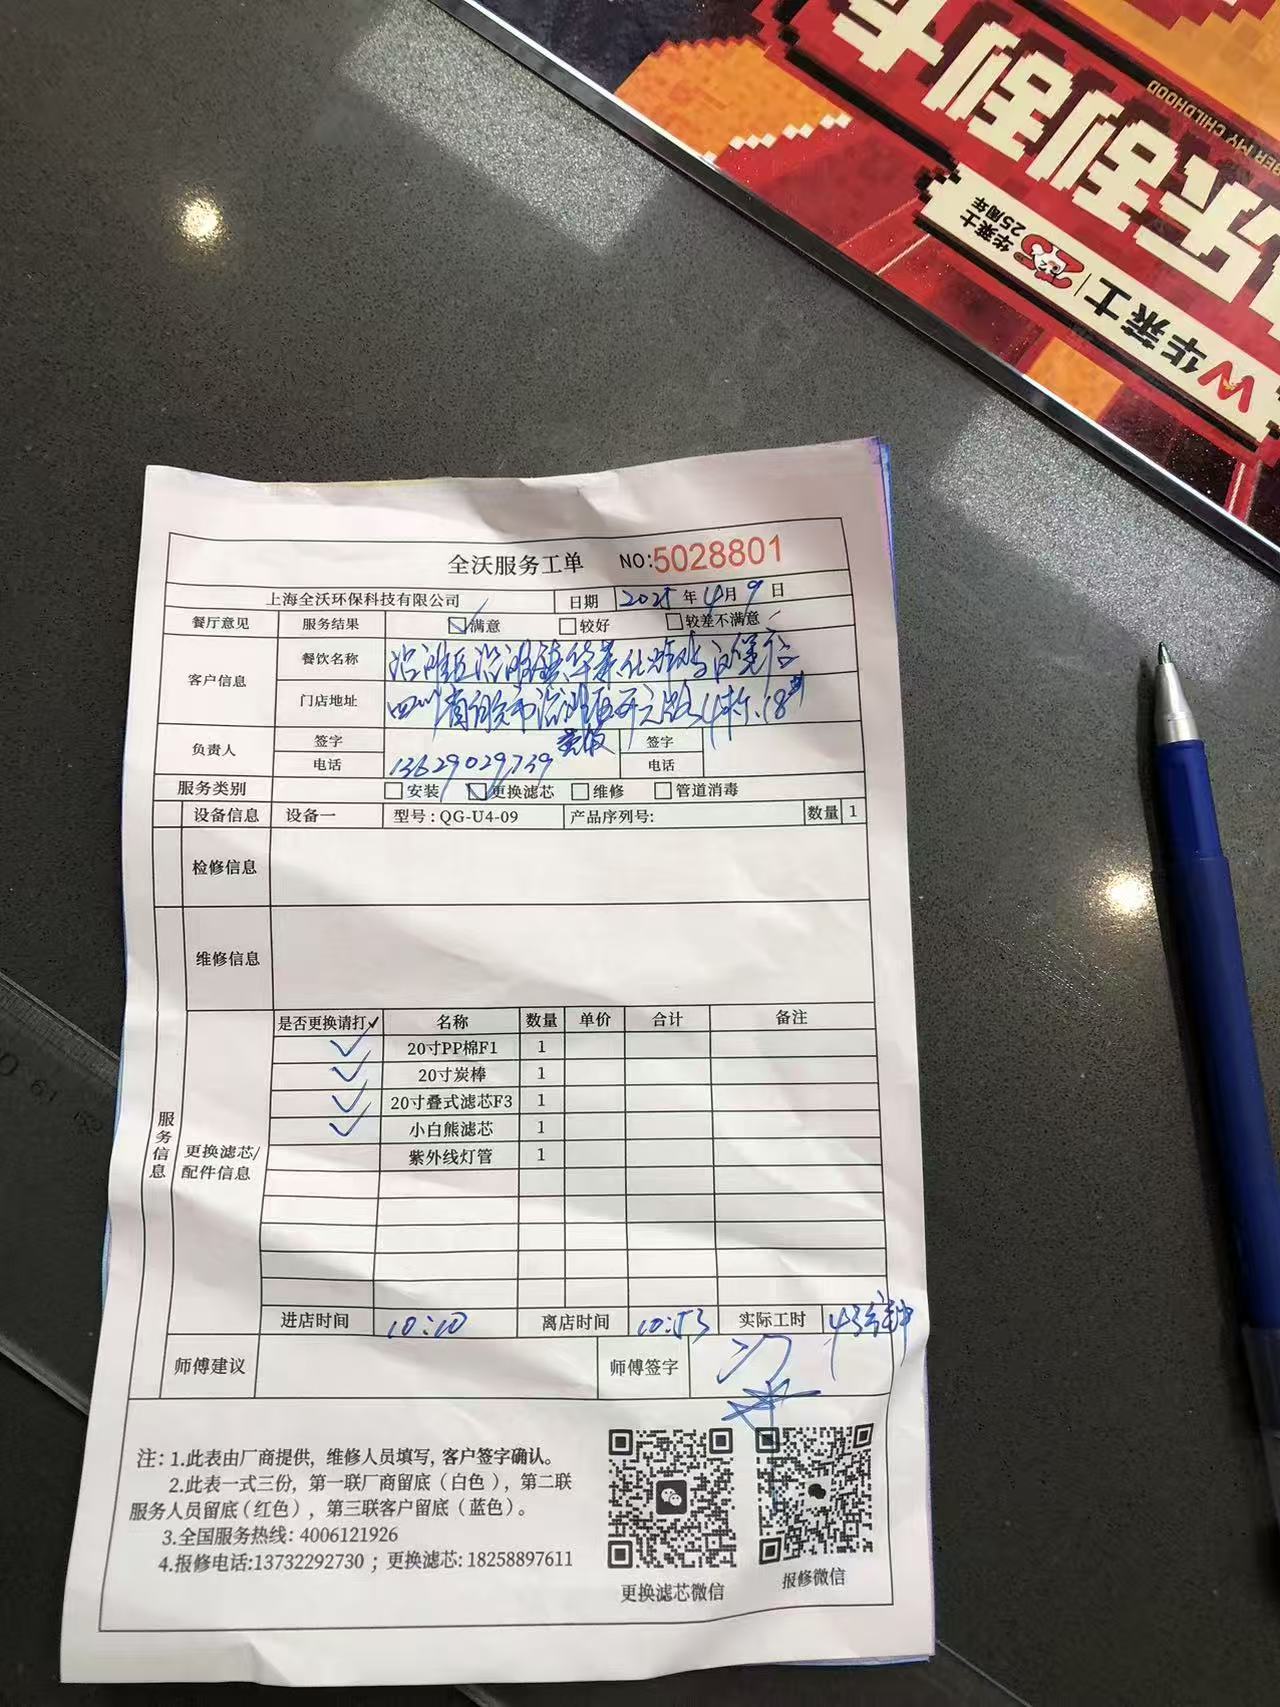 别到
乐别到
BER MY CHILDHOOD
W华莱士
华莱士
25周年
全沃服务工单 NO:5028801
上海全沃环保科技有限公司 日期 2025 年 4 月 9 日
餐厅意见 服务结果 满意 较好 较差不满意
客户信息 餐饮名称 沿滩区沿滩镇华莱仕炸鸡汉堡店
门店地址 四川省自贡市沿滩区开元路4栋18#
负责人 签字 签字
电话 13629029739 电话
服务类别 安装 更换滤芯 维修 管道消毒
设备信息 设备一 型号:QG-U4-09 产品序列号: 数量 1
检修信息
维修信息
服务信息
更换滤芯/配件信息
是否更换请打✓ 名称 数量 单价 合计 备注
✓ 20寸PP棉F1 1
✓ 20寸炭棒 1
✓ 20寸叠式滤芯F3 1
✓ 小白熊滤芯 1
紫外线灯管 1
进店时间 10:10 离店时间 10:53 实际工时 43分钟
师傅建议 师傅签字
注:1.此表由厂商提供,维修人员填写,客户签字确认。
2.此表一式三份,第一联厂商留底(白色),第二联
服务人员留底(红色),第三联客户留底(蓝色)。
3.全国服务热线:4006121926
4.报修电话:13732292730;更换滤芯:18258897611
更换滤芯微信 报修微信